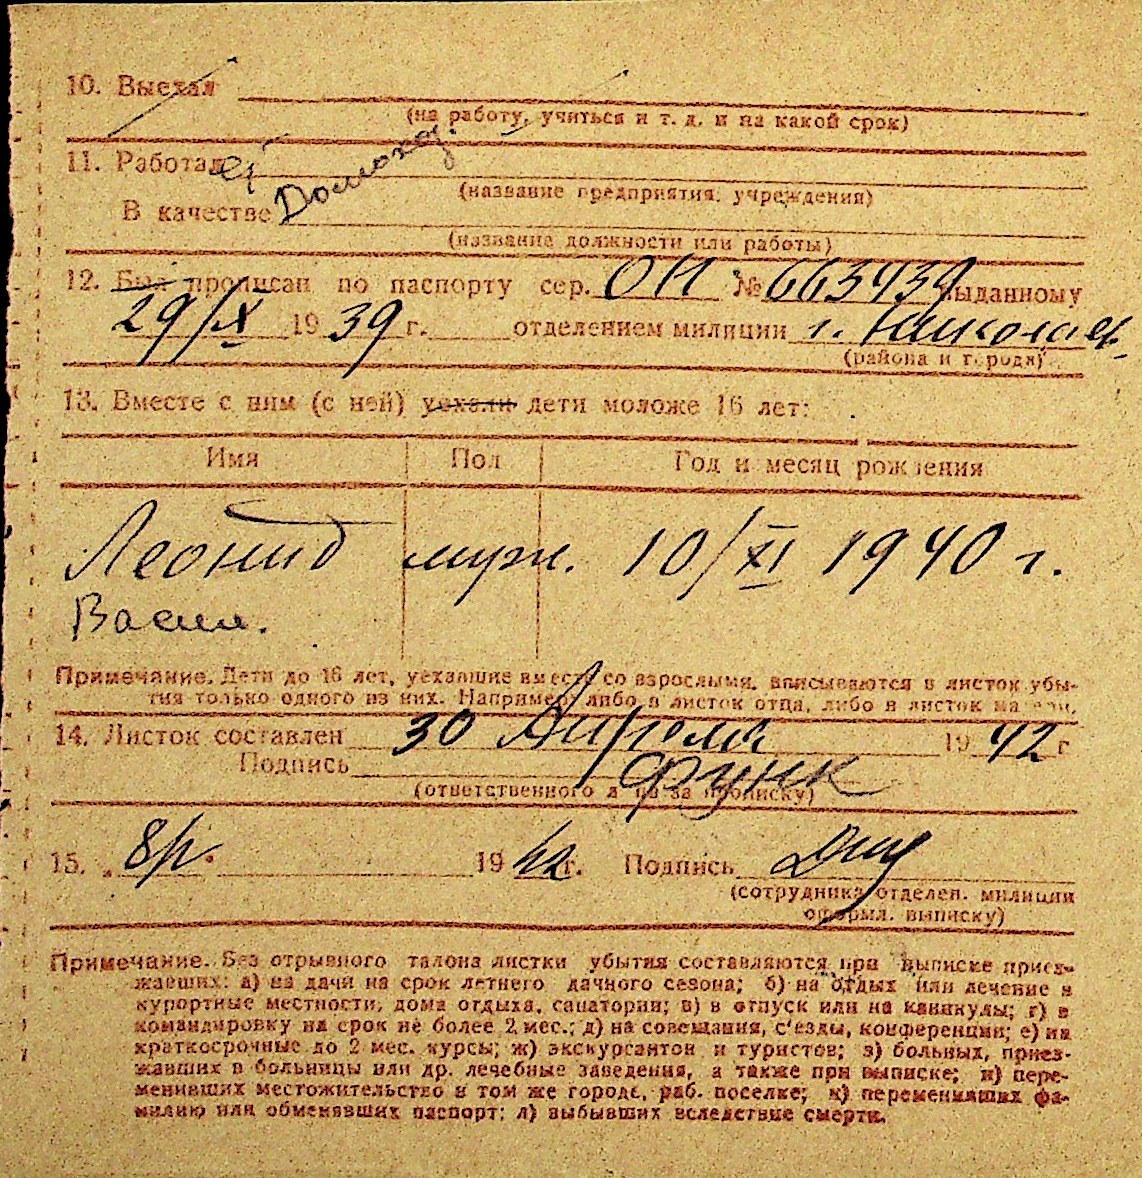 10. Выехал
(на работу, учиться и т. д. и на какой срок)
11. Работал
(название предприятия, учреждения)
В качестве Домохоз.
(название должности или работы)
12. Был прописан по паспорту сер. ОП № 663939 выданному
29/X 1939 г. отделением милиции г. Николаев
(района и города)
13. Вместе с ним (с ней) уехали дети моложе 16 лет:
Имя Пол Год и месяц рождения
Леонид муж. 10/XI 1940 г.
Васил.
Примечание. Дети до 16 лет, уехавшие вместе со взрослыми, вписываются в листок убы-
тия только одного из них. Например, либо в листок отца, либо в листок матери.
14. Листок составлен 30 Апреля 1942 г
Подпись Функ
(ответственного лица за прописку)
15. 1942 г. Подпись
(сотрудника отделен. милиции
оформл. выписку)
Примечание. Без отрывного талона листки убытия составляются при выписке приез-
жавших: а) на дачи на срок летнего дачного сезона; б) на отдых или лечение в
курортные местности, дома отдыха, санатории; в) в отпуск или на каникулы; г) в
командировку на срок не более 2 мес.; д) на совещания, с'езды, конференции; е) на
краткосрочные до 2 мес. курсы; ж) экскурсантов и туристов; з) больных, приез-
жавших в больницы или др. лечебные заведения, а также при выписке; и) пере-
менивших местожительство в том же городе, раб. поселке; к) переменивших фа-
милию или обменявших паспорт; л) выбывших вследствие смерти.